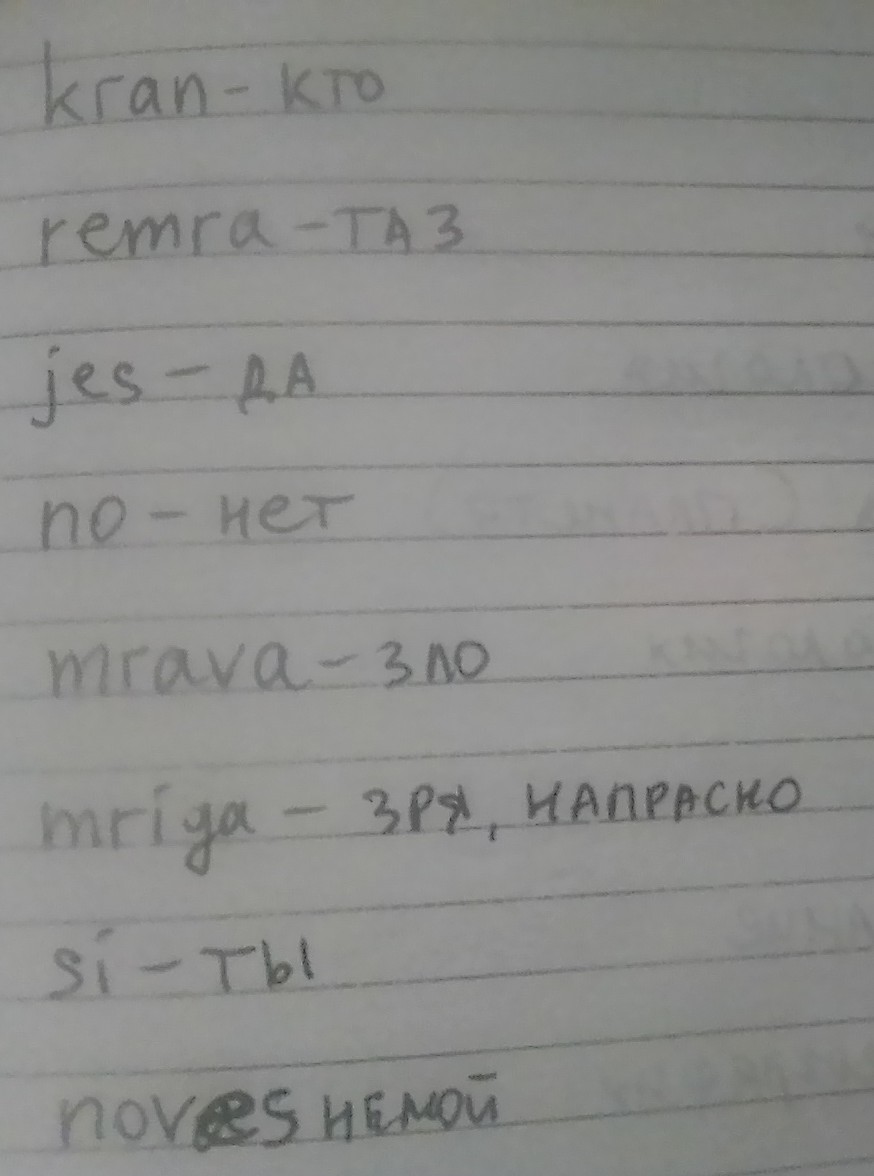 kran - кто
remra - ТАЗ
jes - ДА
no - нет
mrava - ЗЛО
mriga - ЗРЯ, НАПРАСНО
si - ТЫ
noves НЕМОЙ